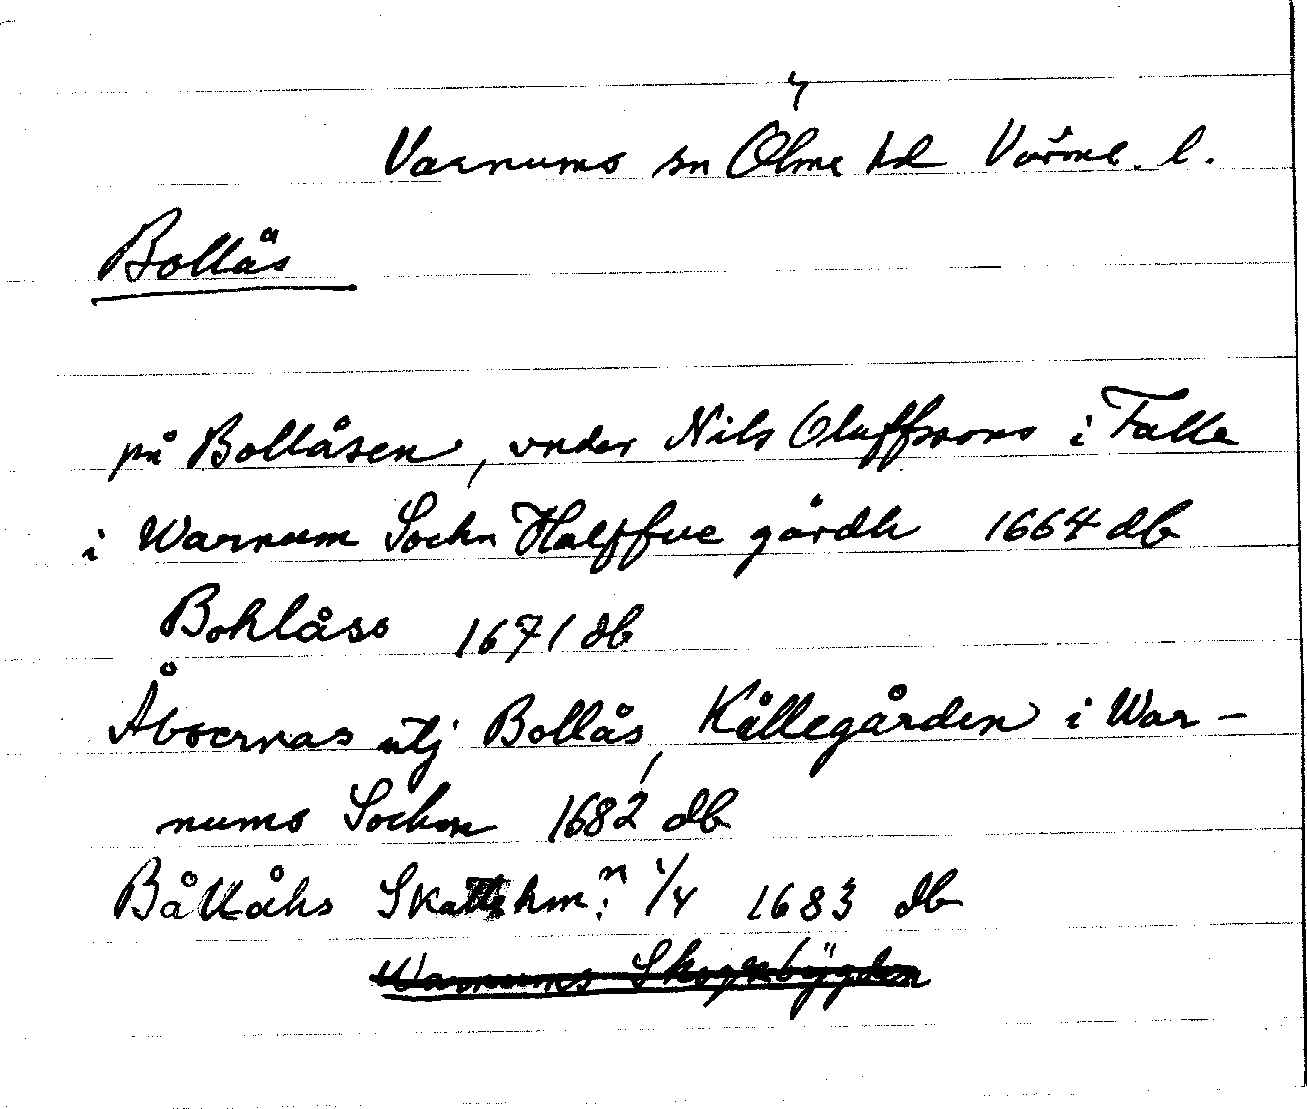 Varnums sn Ölme hd Värml. l.
Bollås
på Bollåsen, vnder Nils Oluffsons i Falle
i Warnum Sochn Halffue gårdh 1664 db
Bohlåss 1671 db
Åboernas utj Bollås, Kållegården i War-
nums Sochn 1682 db
Bållåhs Skattehm:n 1/4 1683 db
Warnums Skogzbÿgden